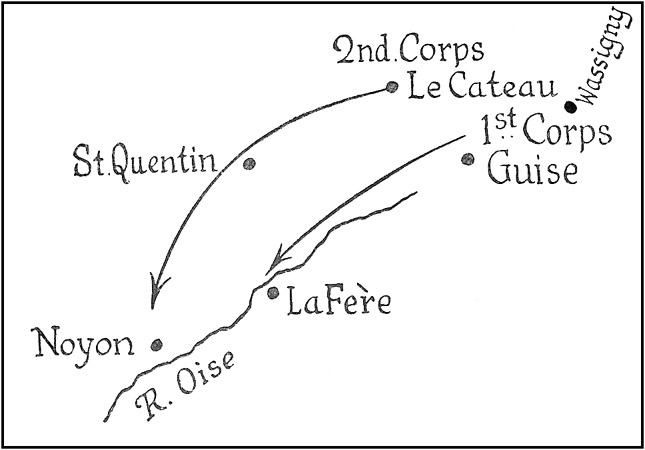 2nd. Corps
Le Cateau
Wassigny
1st Corps
St. Quentin
Guise
La Fère
Noyon
R. Oise